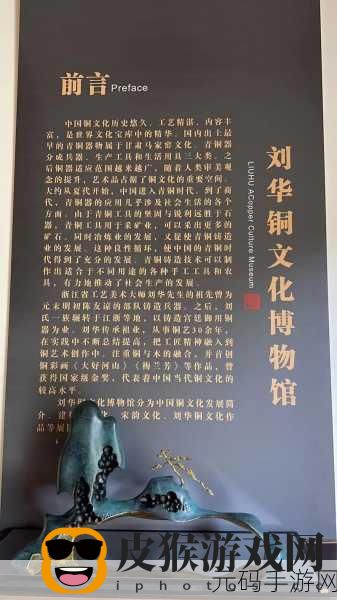 前言 Preface
中国铜文化历史悠久、工艺精湛、内容丰
富，是世界文化宝库中的精华。国内出土最
早的青铜器物属于甘肃马家窑文化。青铜器
分成兵器、生产工具和生活用具三大类。之
后铜器适应范围越来越广，随着人类审美观
念的提升，艺术品占据了铜文化的重要空间。
大约从夏代开始，中国进入青铜时代。到了商
代，青铜器的应用几乎涉及社会生活的各个
方面。由于青铜工具的坚固与锐利远胜于石
器，青铜工具用于采矿业，可以采出更多的
矿石。同时冶炼业的发展，又促使青铜铸造
业的发展。这种良性循环，使中国的青铜时
代得到了充分的发展。青铜铸造技术可以制
作出适合于不同用途的各种手工工具和农
具，有力地推动了社会生产的发展。
浙江省工艺美术大师刘华先生的祖先曾为
元末明初陈友谅的部队铸造兵器。之后，刘
氏一族辗转于江浙等地，以铸造宫廷御用铜
器为业。刘华传承祖业，从事铜艺30余年，
在实践中不断总结提高，把工匠精神融入到
铜艺术创作中。注重铜与木的融合，并首创
铜彩画《大好河山》《梅兰芳》等作品，曾
获得国家级金奖，代表着中国当代铜文化的
较高水平。
刘华铜文化博物馆分为中国铜文化发展简
介、建
宋韵文化、刘华铜文化作
品等展
刘华铜文化博物馆
LIUHU ACopper Culture Museum
皮猴游戏网
iphoto
元码手游网